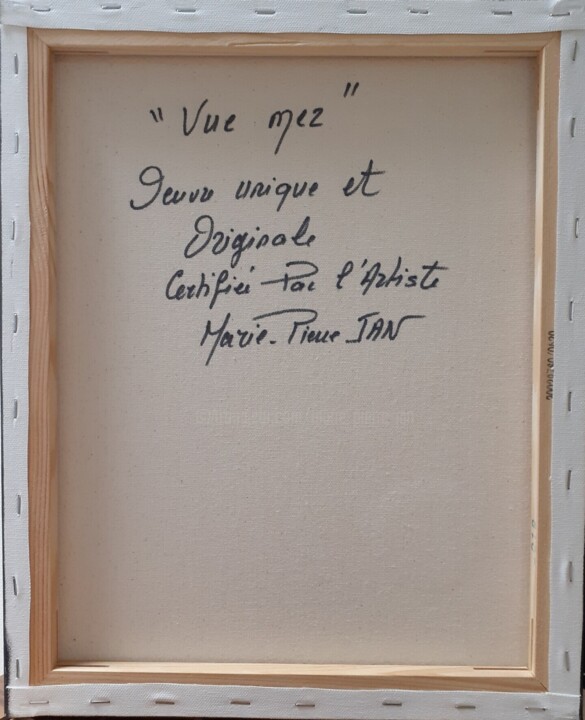 " Vue mer "
Oeuvre unique et
Originale
Certifiée Par l'Artiste
Marie-Pierre JAN